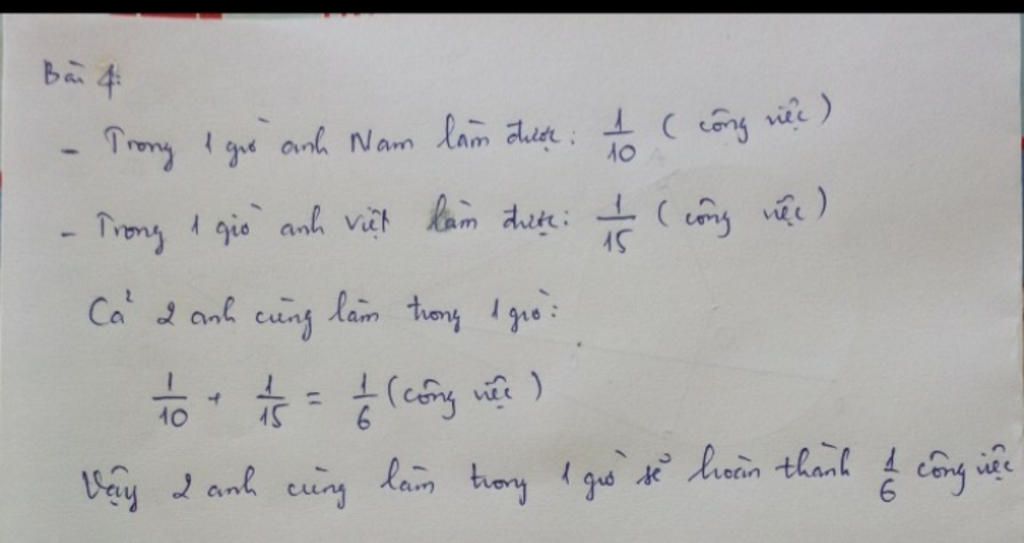 Bài 4:
- Trong 1 giờ anh Nam làm được: 1/10 (công việc)
- Trong 1 giờ anh Việt làm được: 1/15 (công việc)
Cả 2 anh cùng làm trong 1 giờ:
1/10 + 1/15 = 1/6 (công việc)
Vậy 2 anh cùng làm trong 1 giờ sẽ hoàn thành 1/6 công việc